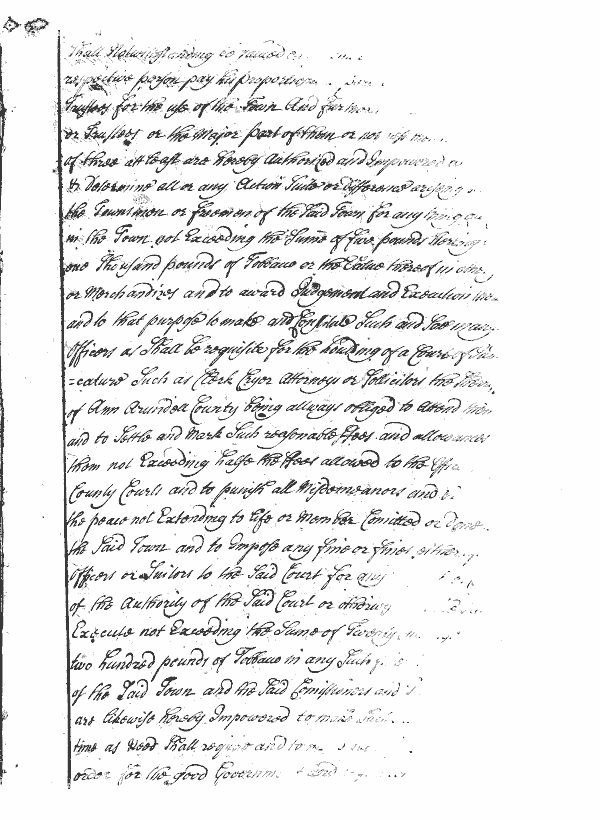 Shall Notwithstanding
respective person pay his proportion
Trustees for the use of the Town And further
or Trustees or the Major part of them or
of three att least are hereby Authorized and Impowered
& Determine all or any Action Suite or difference
the Townsmen or freemen of the Said Town for any thing
in the Town not Exceeding the Sume of five pounds
one Thousand pounds of Tobbaco or the Value thereof in
or Merchandizes and to award Judgement and Execution
and to that purpose to make and Constitute Such and Soe many
Officers as Shall be requisite for the holding of a Court of
=cature Such as Clerk Cryer Attorney or Sollicitors the
of Ann Arundell County being allways obliged to Attend
and to Settle and Mark Such reasonable ffees and allowances
them not Exceeding halfe the ffees allowed to the
County Courts and to punish all Misdemeanors and
the peace not Extending to Life or Member Comitted or Done
the Said Town and to Impose any fine or fines either
Officers or Suitors to the Said Court for any
of the Authority of the Said Court or
Execute not Exceeding the Sume of Twenty
two hundred pounds of Tobbaco in any Such
of the Said Town and the Said Comissioners and
are likewise hereby Impowered to make Such
time as Need Shall require and to
order for the good Governm